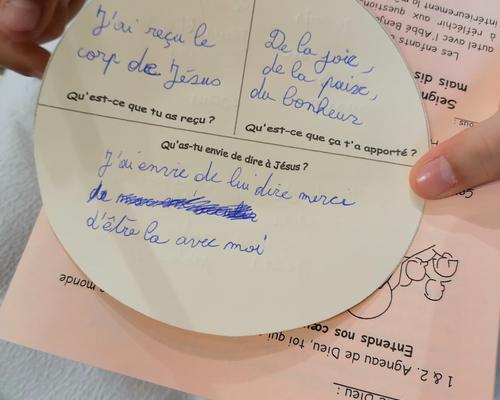 J'ai reçu le
corp de Jésus
Qu'est-ce que tu as reçu ?
De la joie,
de la paix,
du bonheur
Qu'est-ce que ça t'a apporté ?
Qu'as-tu envie de dire à Jésus ?
J'ai envie de lui dire merci
de
d'être la avec moi
Les enfants
autel avec l'Abbé Benj
à réfléchir aux question
intérieurement le p
Seign
mais dis
ous :
e monde
1 & 2. Agneau de Dieu, toi qui
Entends nos cœu
Dieu :